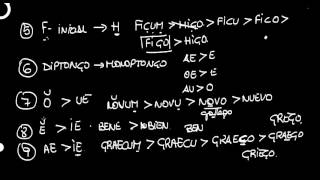 ⑤ F- INICIAL → H FICUM > HIGO > FICU > FICO >
FIGO > HIGO.
⑥ DIPTONGO → MONOPTONGO AE > E
OE > E
AU > O
⑦ Ŏ > UE NŎVUM > NOVU > NOVO > NUEVO
⑧ Ĕ > IE · BENE >
GREGO.
⑨ AE > IE GRAECUM > GRAECU > GRAEGO > GRAEGO
GRIEGO.